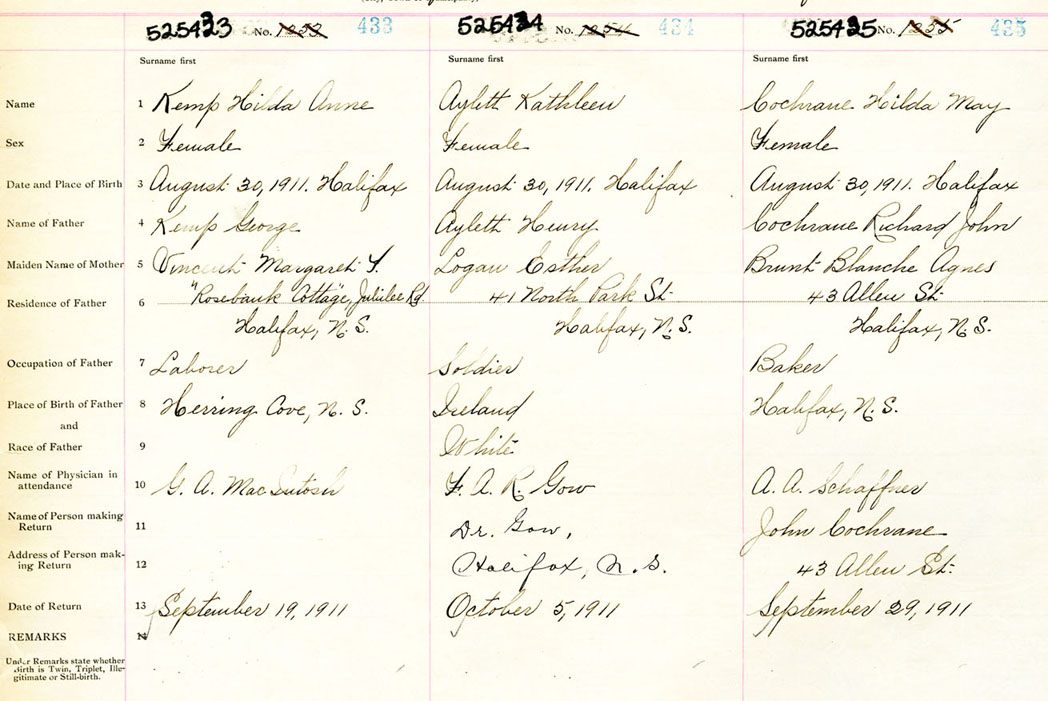 525433 No. 1253 433
525434 No. 1254 434
525435 No. 1255 435
Surname first
Surname first
Surname first
Name 1 Kemp Hilda Anne
Aylett Kathleen
Cochrane Hilda May
Sex 2 Female
Female
Female
Date and Place of Birth 3 August 30, 1911. Halifax
August 30, 1911. Halifax
August 30, 1911. Halifax
Name of Father 4 Kemp George
Aylett Henry
Cochrane Richard John
Maiden Name of Mother 5 Vincent Margaret Y.
Logan Esther
Brunt Blanche Agnes
Residence of Father 6 "Rosebank Cottage, Jubilee Rd.
Halifax, N.S.
41 North Park St.
Halifax, N.S.
43 Allen St.
Halifax, N.S.
Occupation of Father 7 Laborer
Soldier
Baker
Place of Birth of Father 8 Herring Cove, N.S.
Ireland
Halifax, N.S.
and
Race of Father 9
White
Name of Physician in
attendance 10 G. A. MacIntosh
F. A. R. Gow
A. A. Schaffner
Name of Person making
Return 11
Dr. Gow,
John Cochrane
Address of Person mak-
ing Return 12
Halifax, N.S.
43 Allen St.
Date of Return 13 September 19, 1911
October 5, 1911
September 29, 1911
REMARKS 14
Under Remarks state whether
Birth is Twin, Triplet, Ille-
gitimate or Still-birth.